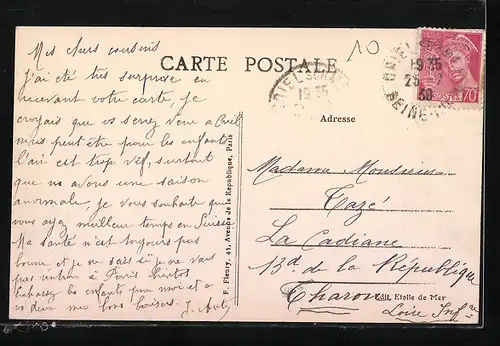 Mes chers cousins
J'ai été très surprise en
recevant votre carte, je
croyais que vous seriez venu a Creil
mais peut être pour les enfants
l'air est trop vif, surtout
que nous avons une saison
anormale, je vous souhaite que
vous ayez meilleur temps en Suisse
Ma santé n'est toujours pas
bonne et je ne sais si je ne vais
pas rentrer à Paris
Embassez les enfants pour moi et a
vs deux mes bons baisers. J.
CARTE POSTALE
10
Adresse
19 35
19 35
25
39
SEINE
POSTES
70
F. Fleury, 43, Avenue de la République, Paris
Madame Monsieur
Tazé
La Cadiane
13 d de la République
Tharon
Edit. Etoile de Mer
Loire Infre